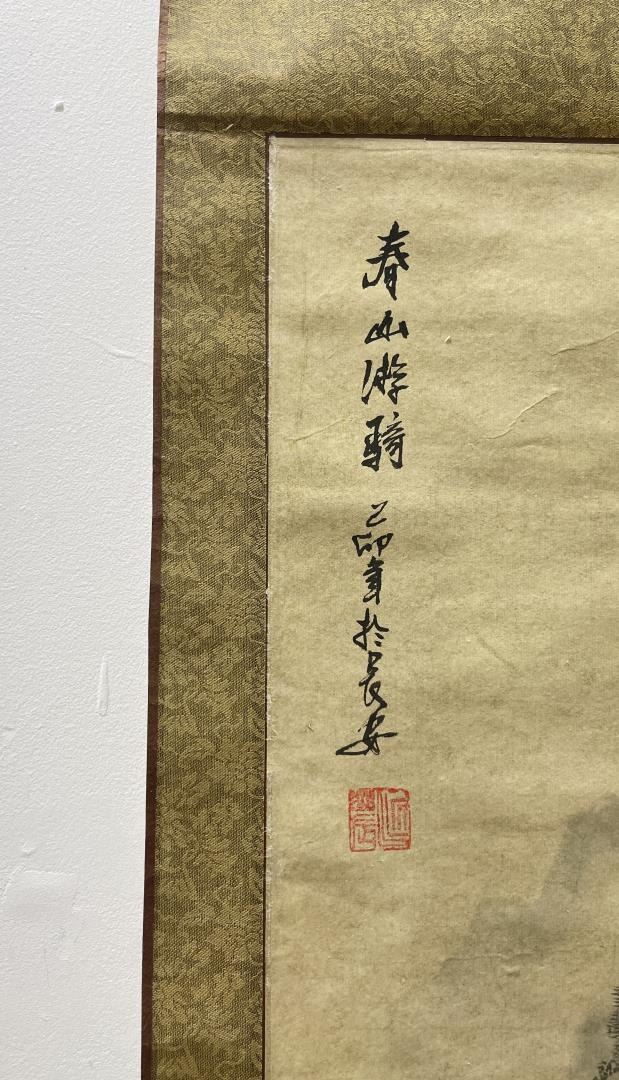 春山游骑 己卯年於长安